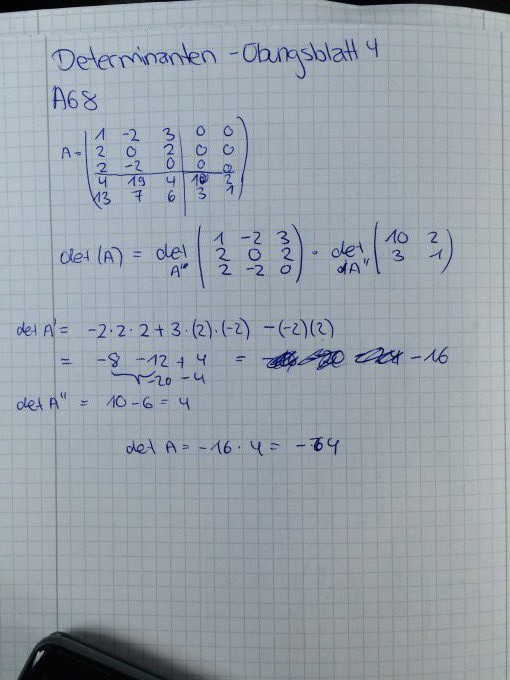 Determinanten - Übungsblatt 4
A68
1 -2 3 0 0
2 0 2 0 0
A =
2 -2 0 0 0
4 19 4 10 2
13 7 6 3 1
det(A) = det A' ( 1 -2 3 · det A'' ( 10 2
2 0 2 3 1 )
2 -2 0 )
det A' = -2·2·2+3·(2)·(-2) -(-2)(2)
= -8 -12 + 4 = -16
-20 -4
det A'' = 10-6 = 4
det A = -16 · 4 = -64